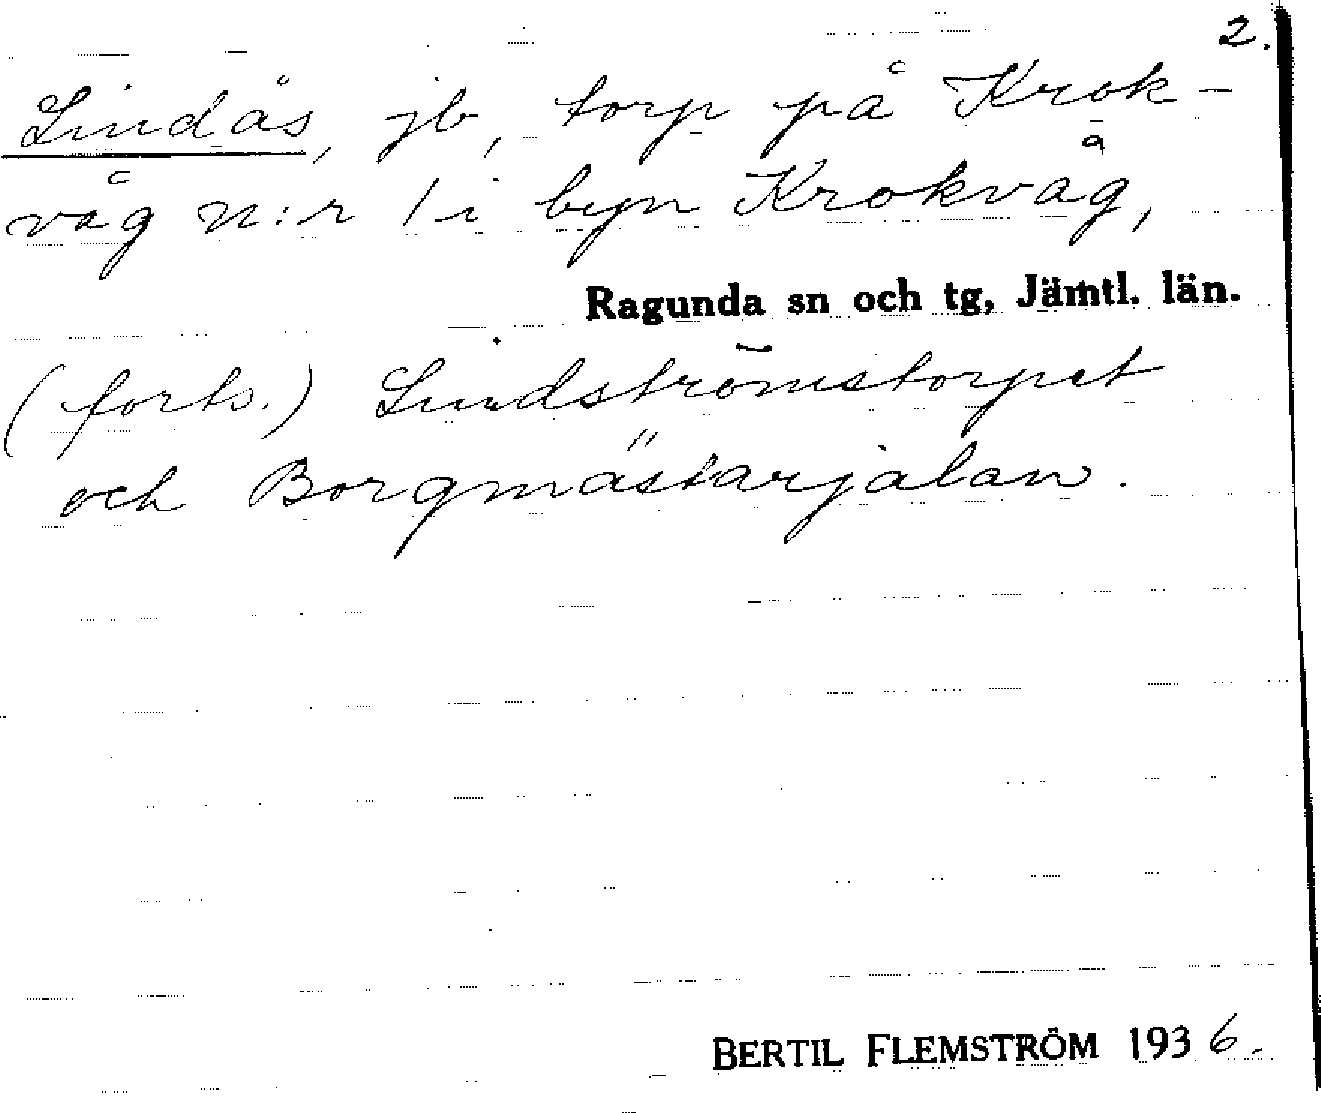 2.
Lindås, jb, torp på Krok-
våg n:r 1 i byn Krokvåg,
Ragunda sn och tg, Jämtl. län.
(forts.) Lindströmstorpet
och Borgmästarjalan.
BERTIL FLEMSTRÖM 1936.